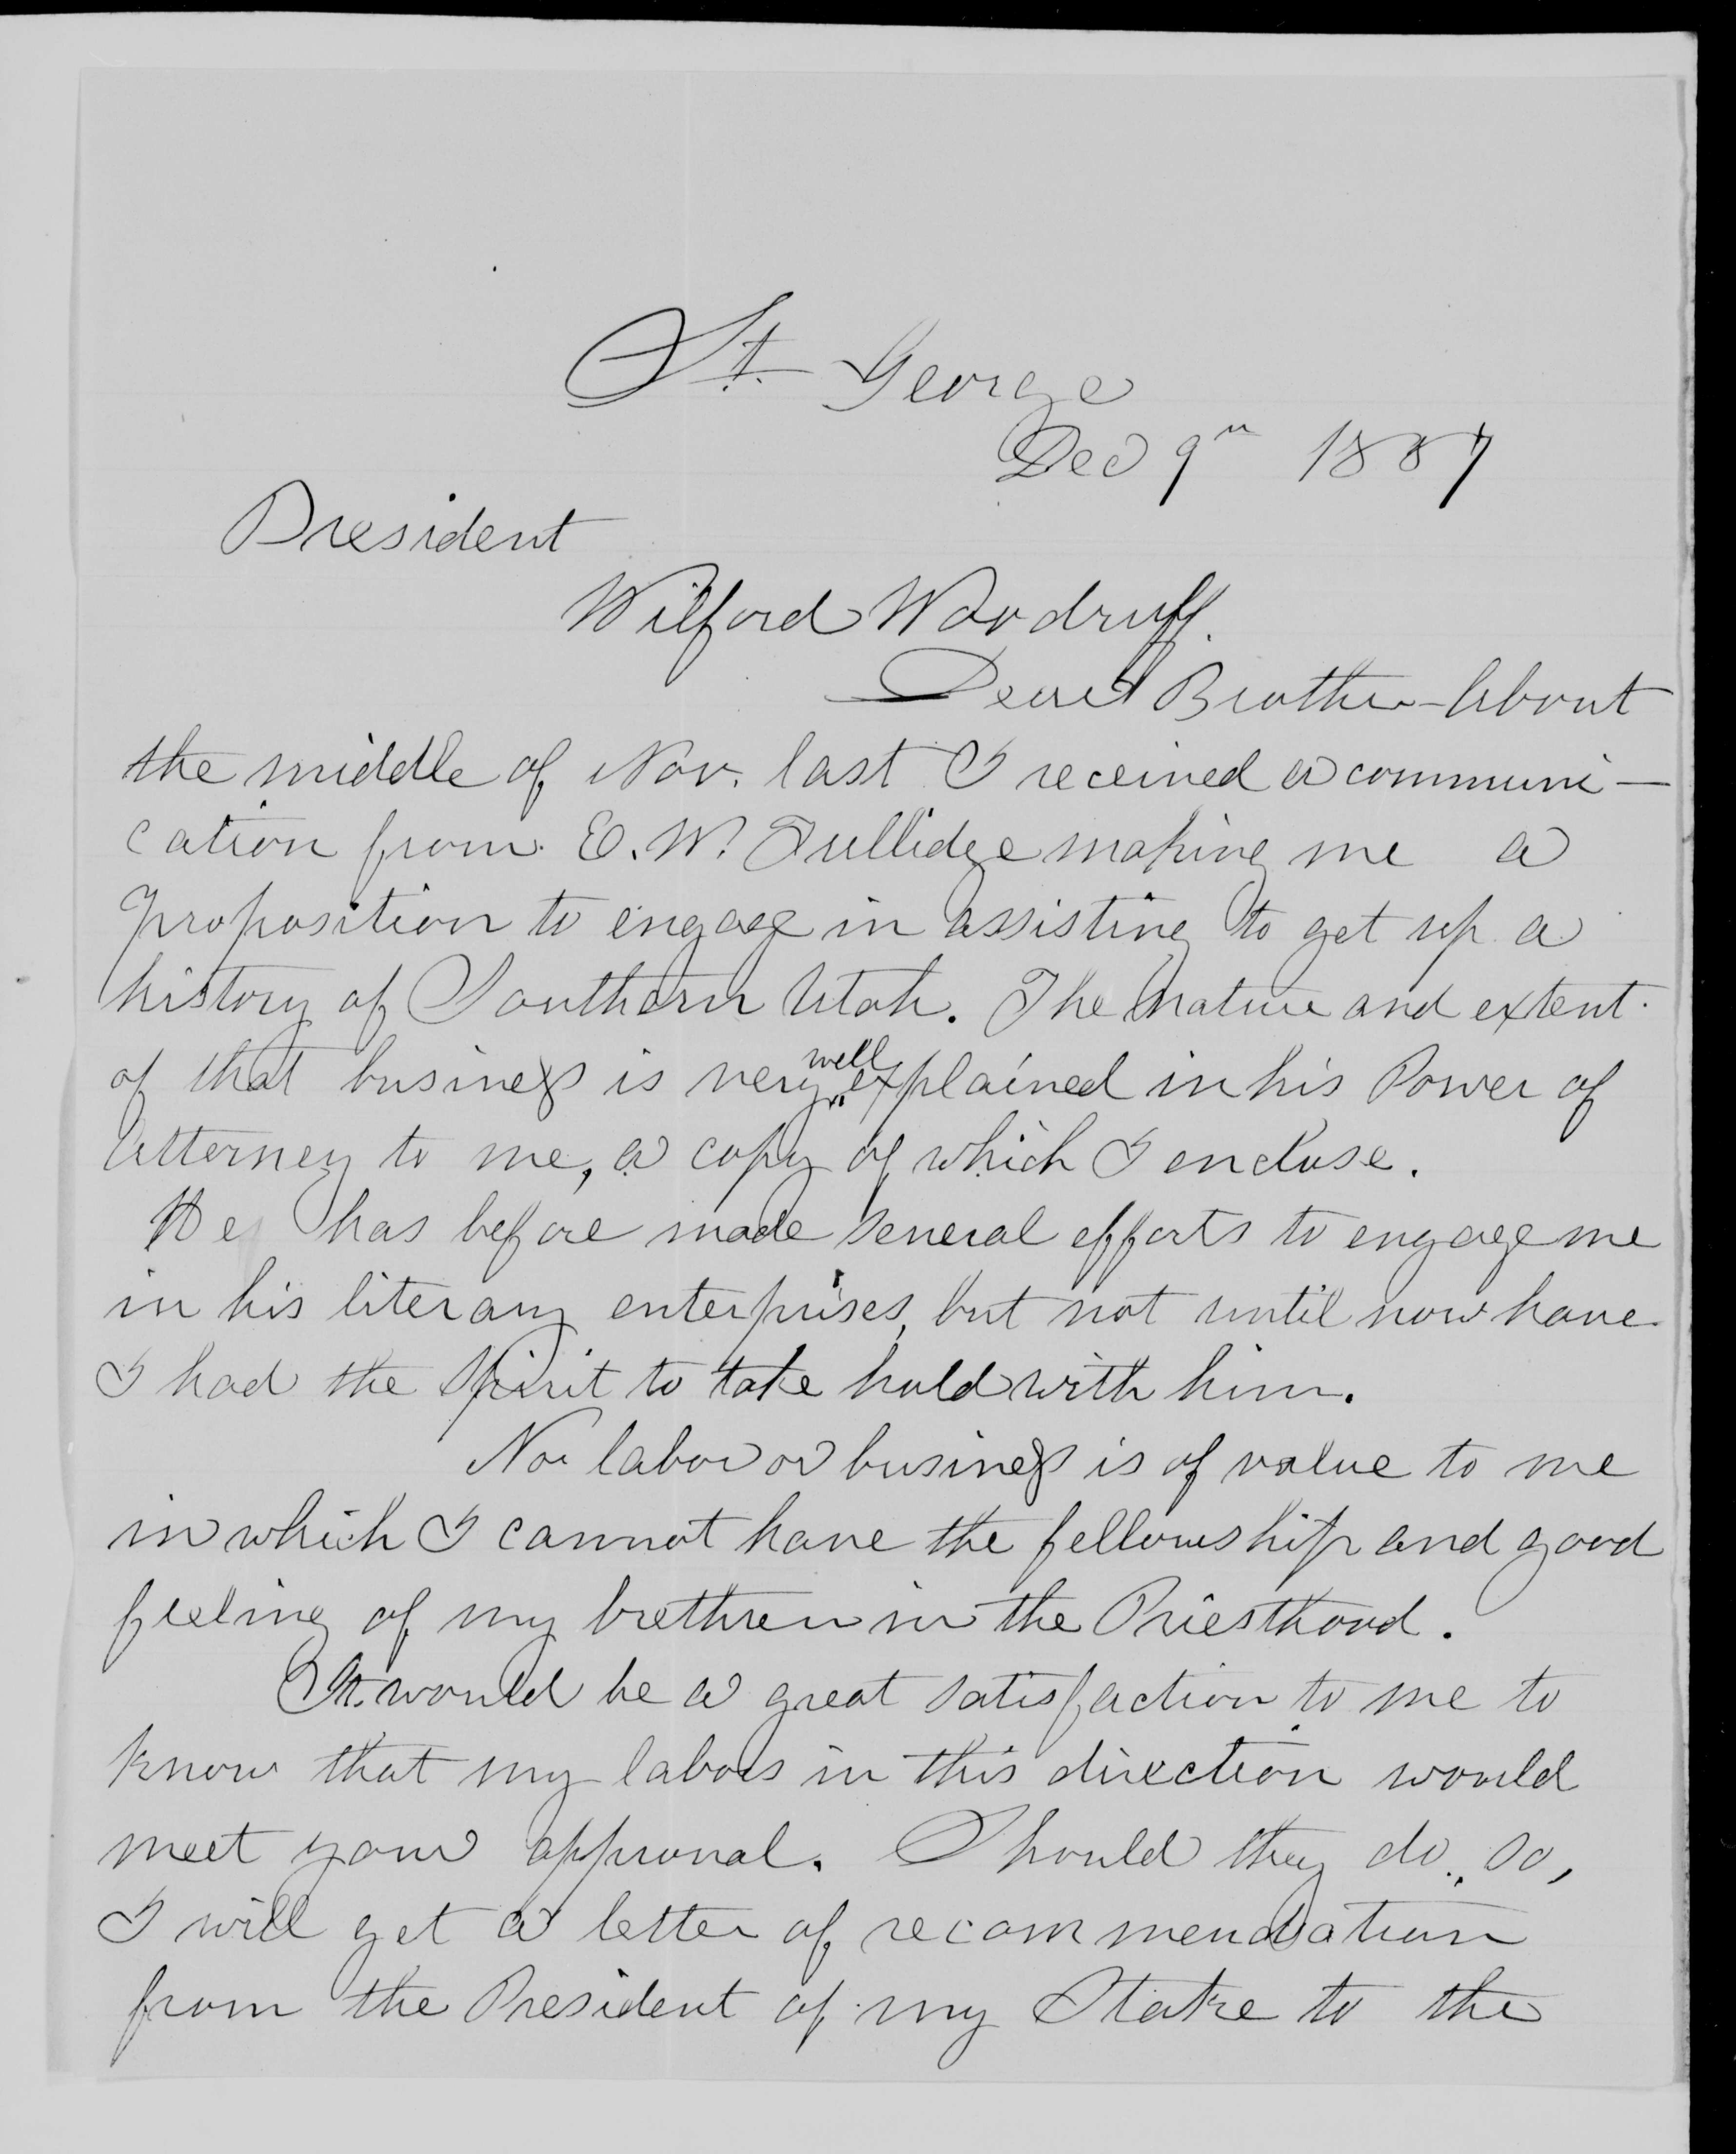 St. George
Dec 9th 1887
President
Wilford Woodruff.
Dear Brother - About
the middle of Nov. last I received a communi-
cation from E. W. Tullidge making me a
proposition to engage in assisting to get up a
history of Southern Utah. The nature and extent
of that business is very well explained in his Power of
Attorney to me, a copy of which I enclose.
He has before made several efforts to engage me
in his literary enterprises, but not until now have
I had the Spirit to take hold with him.
No labor or business is of value to me
in which I cannot have the fellowship and good
feeling of my brethren in the Priesthood.
It would be a great satisfaction to me to
know that my labors in this direction would
meet your approval. Should they do so,
I will get a letter of recommendation
from the President of my Stake to the